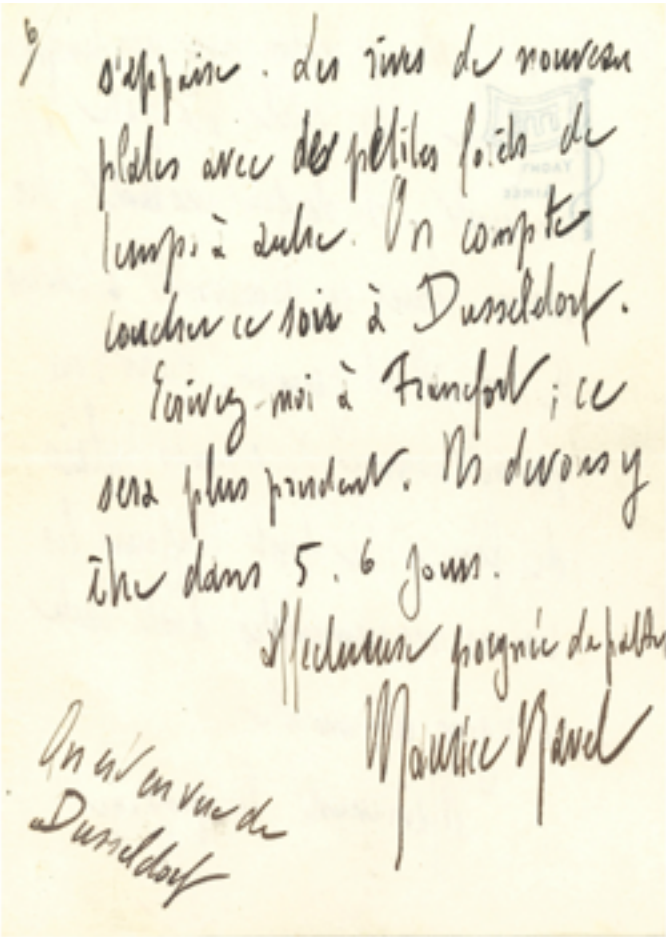 6/
s'appaise. Les rives de nouveau
plates avec des petites forêts de
temps à autre. On compte
coucher ce soir à Dusseldorf.
Ecrivez-moi à Francfort ; ce
sera plus prudent. Ns devons y
être dans 5. 6 jours.
Affectueuse poignée de pattes
Maurice Ravel
On est en vue de
Dusseldorf
YACHT
AIMÉE